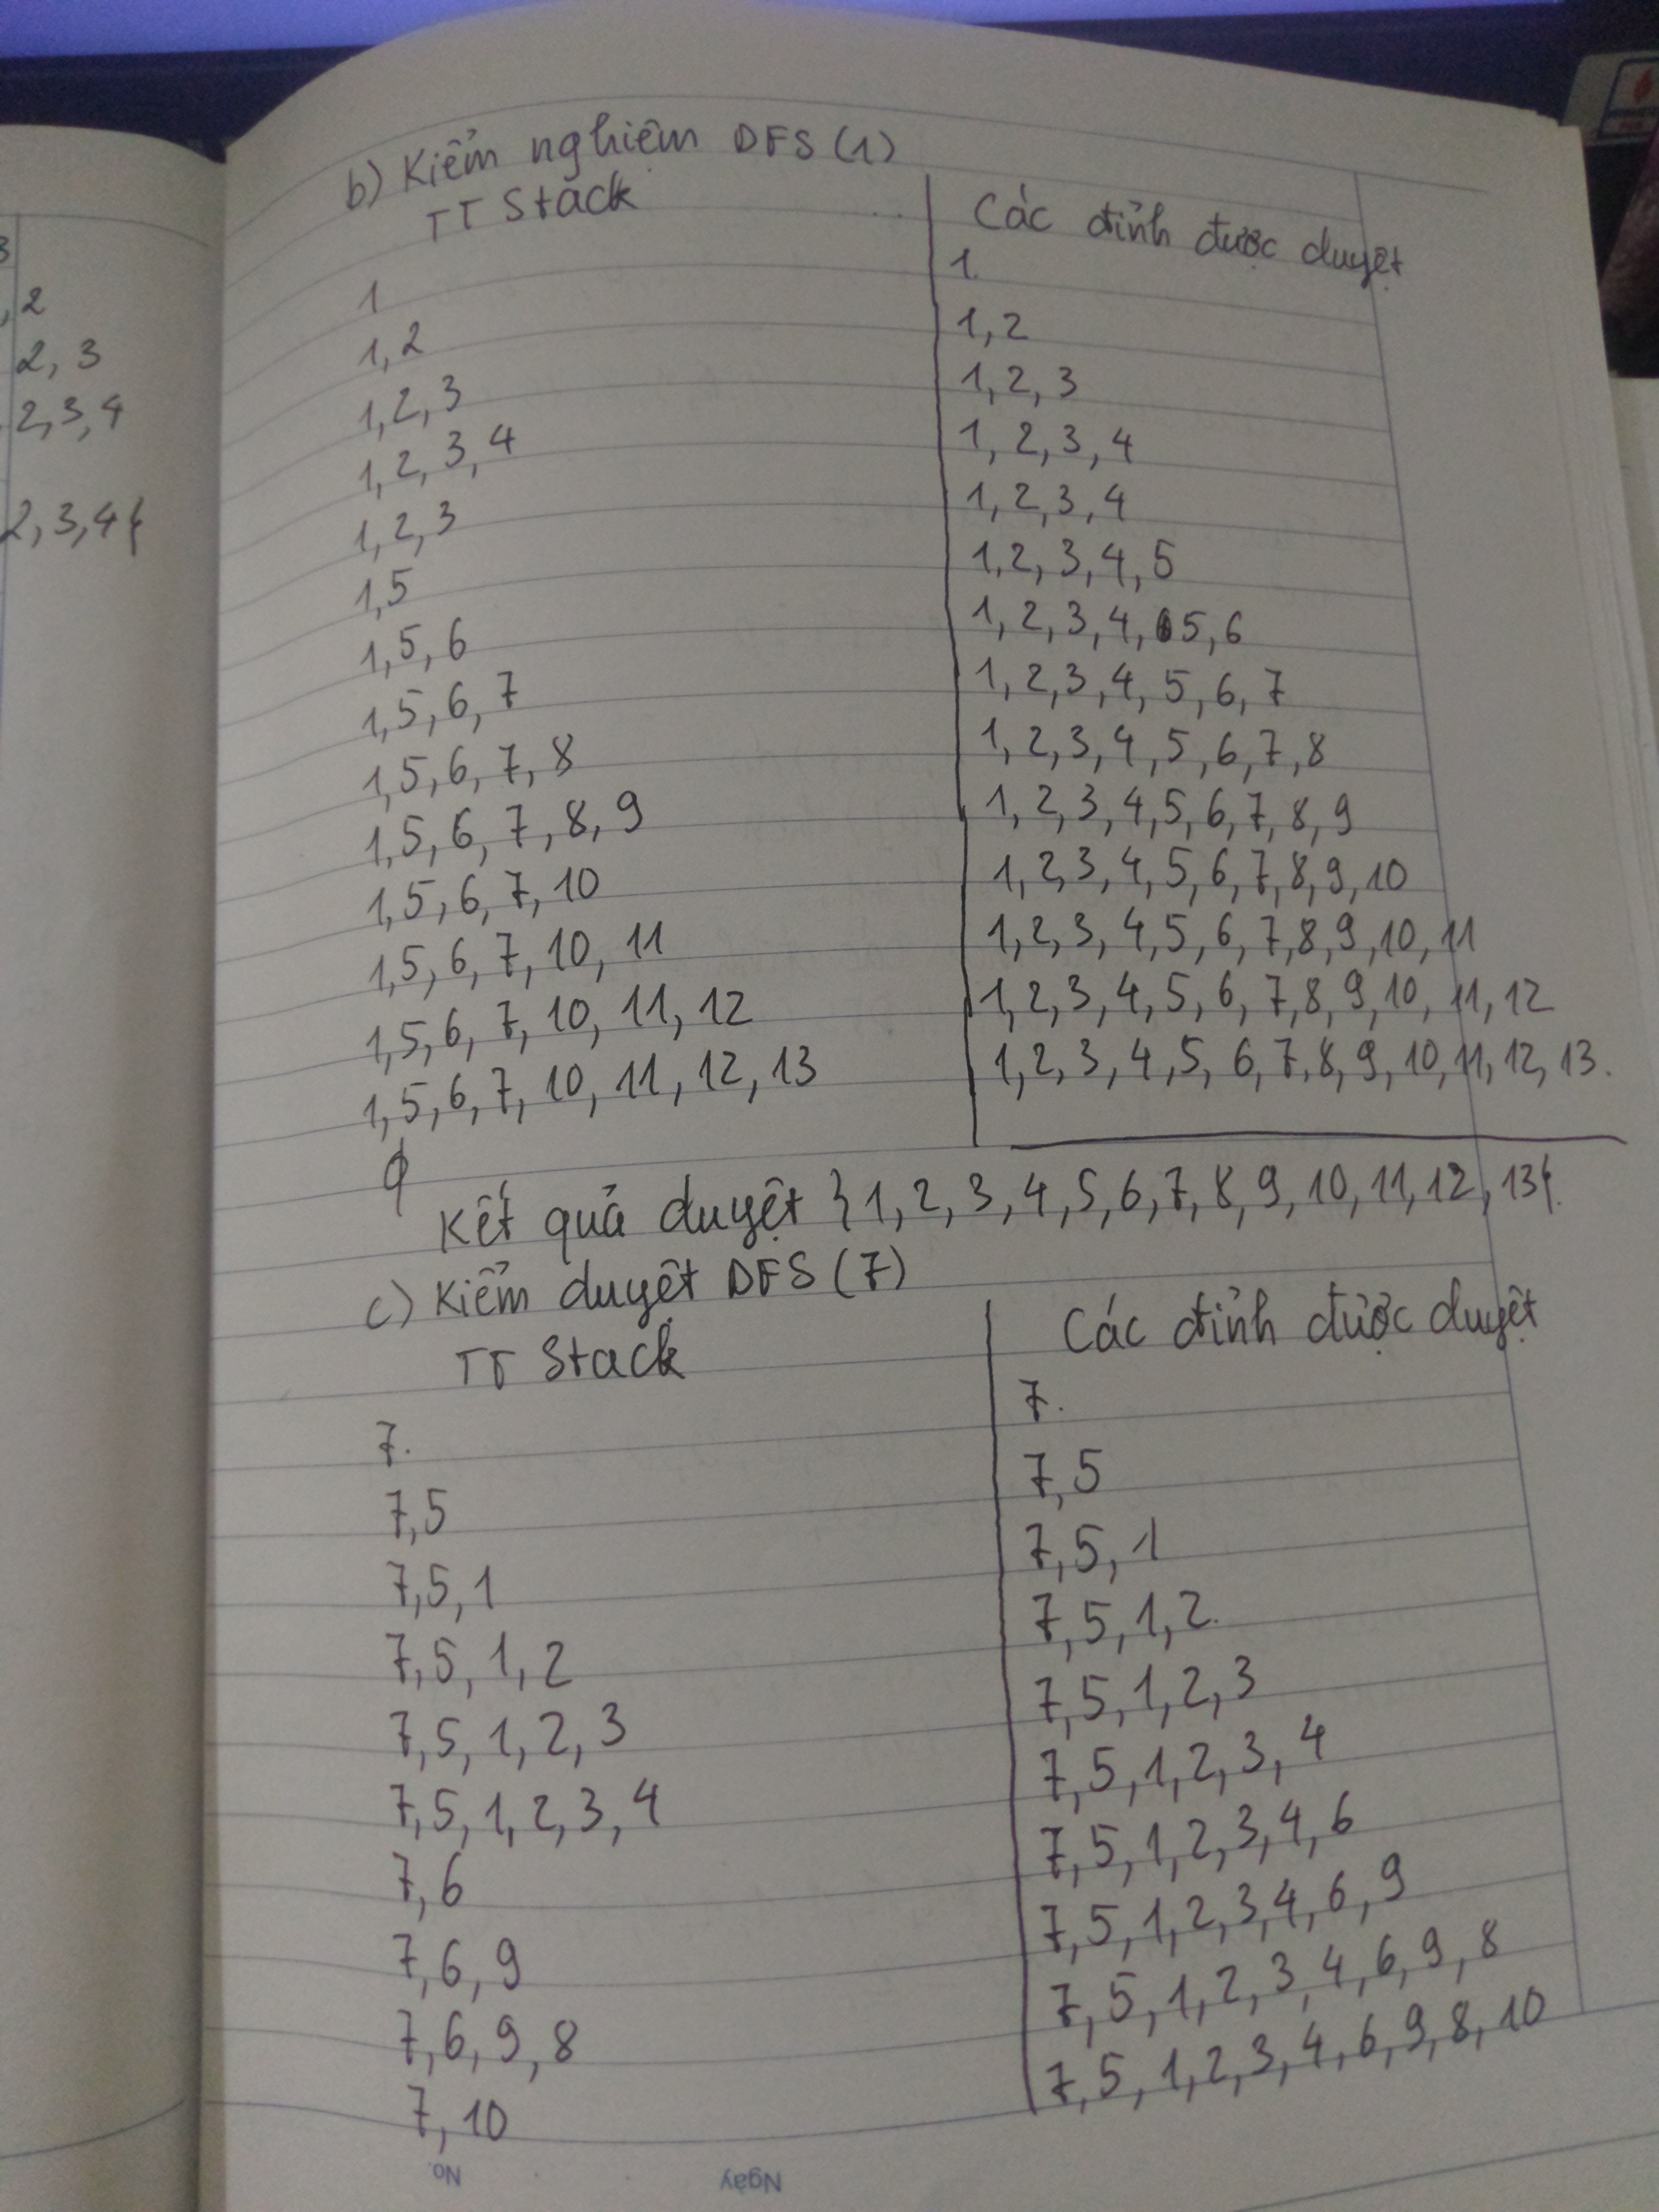 3
, 2
2, 3
2, 3, 4
2, 3, 4}
b) Kiểm nghiệm DFS (1)
TT Stack Các đỉnh được duyệt
1 1
1, 2 1, 2
1, 2, 3 1, 2, 3
1, 2, 3, 4 1, 2, 3, 4
1, 2, 3 1, 2, 3, 4
1, 5 1, 2, 3, 4, 5
1, 5, 6 1, 2, 3, 4, 5, 6
1, 5, 6, 7 1, 2, 3, 4, 5, 6, 7
1, 5, 6, 7, 8 1, 2, 3, 4, 5, 6, 7, 8
1, 5, 6, 7, 8, 9 1, 2, 3, 4, 5, 6, 7, 8, 9
1, 5, 6, 7, 10 1, 2, 3, 4, 5, 6, 7, 8, 9, 10
1, 5, 6, 7, 10, 11 1, 2, 3, 4, 5, 6, 7, 8, 9, 10, 11
1, 5, 6, 7, 10, 11, 12 1, 2, 3, 4, 5, 6, 7, 8, 9, 10, 11, 12
1, 5, 6, 7, 10, 11, 12, 13 1, 2, 3, 4, 5, 6, 7, 8, 9, 10, 11, 12, 13.
ϕ
Kết quả duyệt {1, 2, 3, 4, 5, 6, 7, 8, 9, 10, 11, 12, 13}.
c) Kiểm duyệt DFS (7)
TT Stack Các đỉnh được duyệt
7. 7.
7, 5 7, 5
7, 5, 1 7, 5, 1
7, 5, 1, 2 7, 5, 1, 2.
7, 5, 1, 2, 3 7, 5, 1, 2, 3
7, 5, 1, 2, 3, 4 7, 5, 1, 2, 3, 4
7, 6 7, 5, 1, 2, 3, 4, 6
7, 6, 9 7, 5, 1, 2, 3, 4, 6, 9
7, 6, 9, 8 7, 5, 1, 2, 3, 4, 6, 9, 8
7, 10 7, 5, 1, 2, 3, 4, 6, 9, 8, 10
No. Ngày